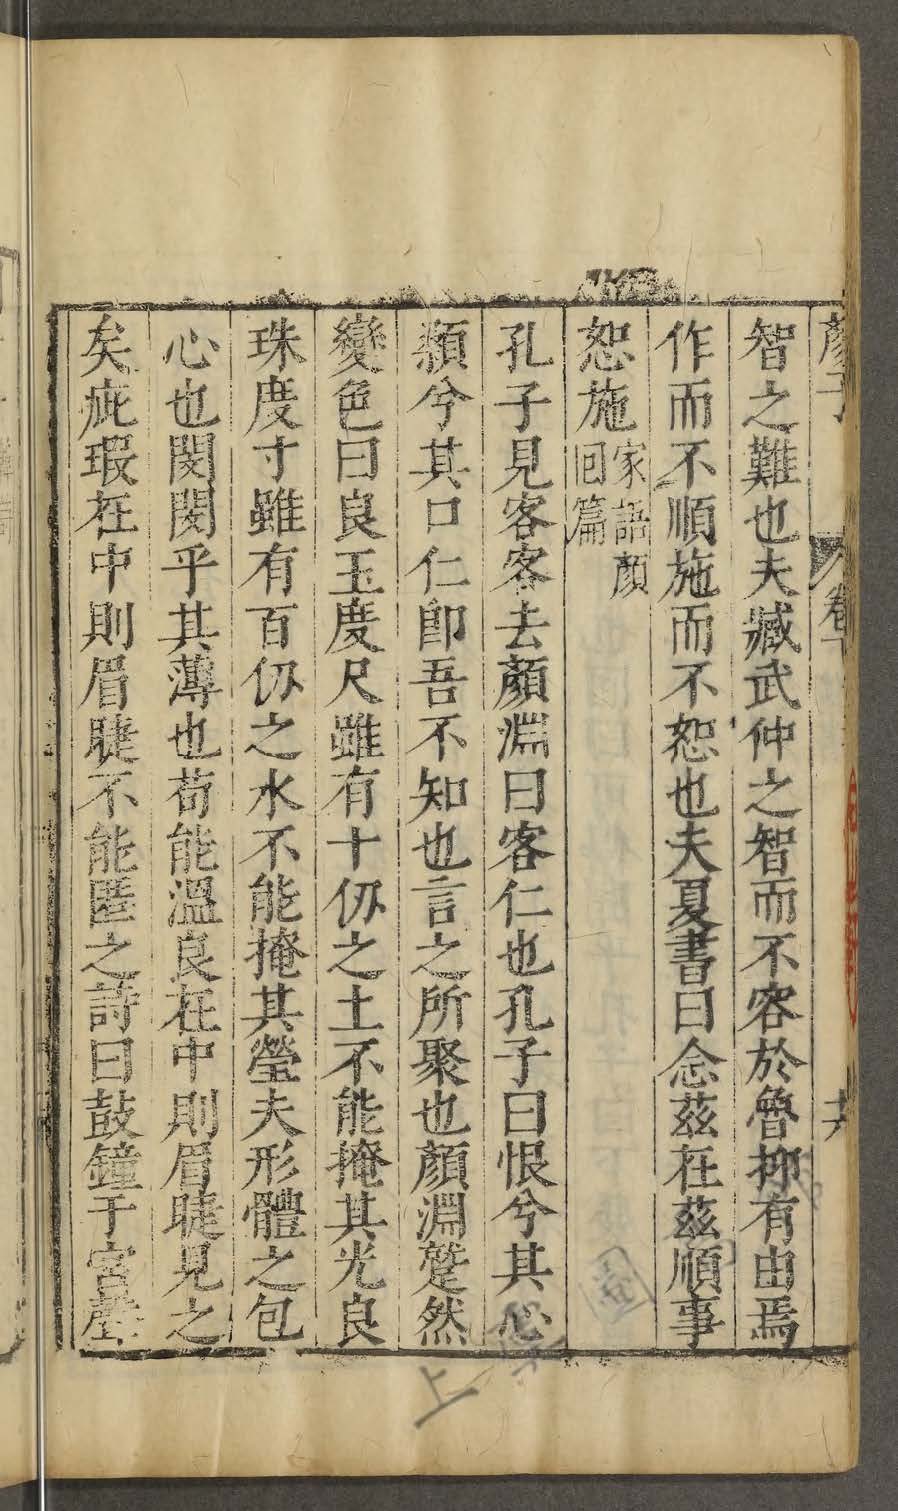 顏子
卷下
十六
智之難也夫臧武仲之智而不容於魯抑有由焉
作而不順施而不恕也夫夏書曰念茲在茲順事
恕施家語顏
回篇
孔子見客客去顏淵曰客仁也孔子曰恨兮其心
顙兮其口仁即吾不知也言之所聚也顏淵蹵然
變色曰良玉度尺雖有十仞之土不能掩其光良
珠度寸雖有百仞之水不能掩其瑩夫形體之包
心也閔閔乎其薄也苟能溫良在中則眉睫見之
矣疵瑕在中則眉睫不能匿之詩曰鼓鐘于宮聲
上